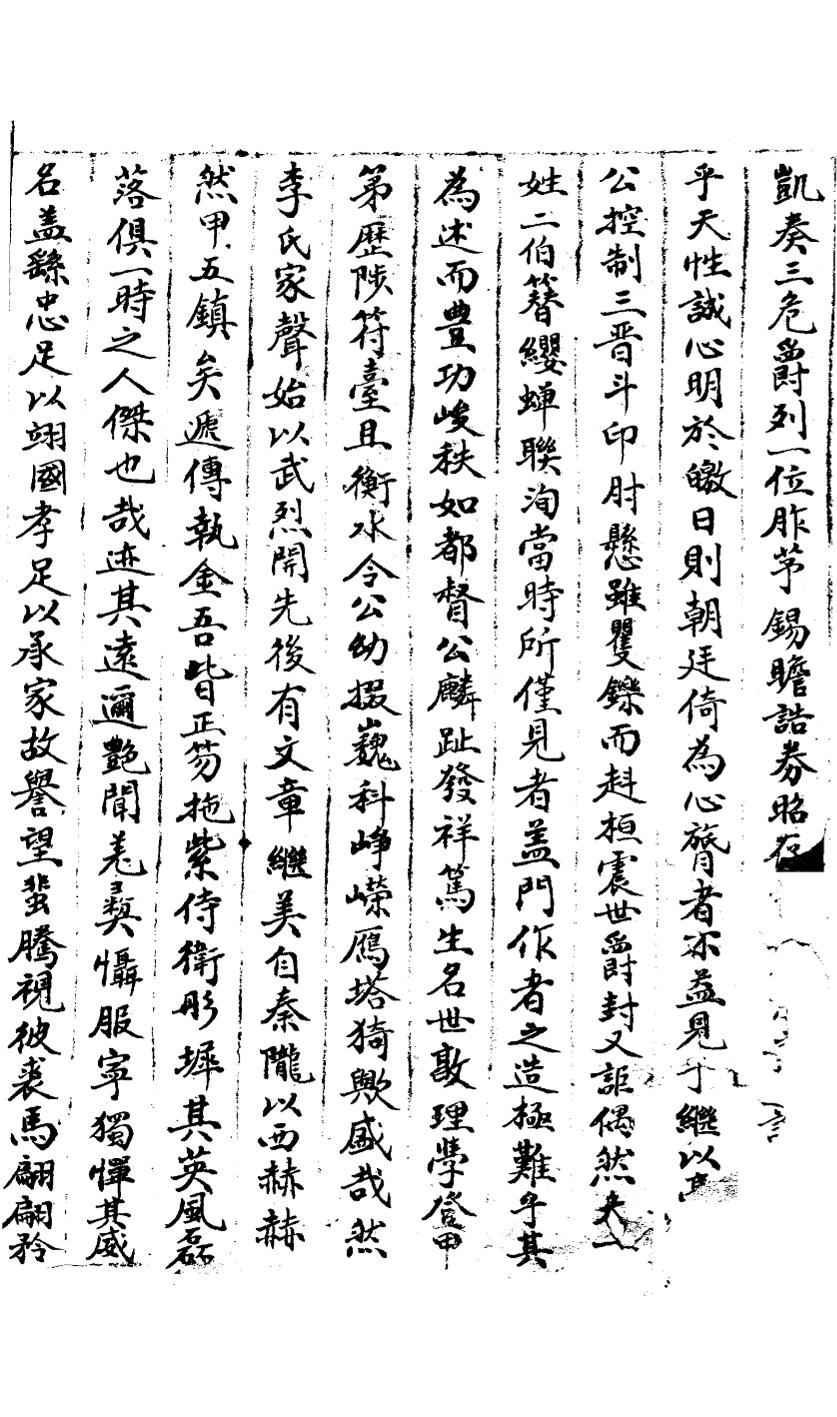 凱奏三危爵列一位胙茅錫瞻誥券昭
乎天性誠心明於皦日則朝廷倚為心膂者不益見乎繼以
公控制三晋斗印肘懸雖矍鑠而赳桓震世爵封又詎偶然夫一
姓二伯簪纓蟬聯洵當時所僅見者盖門作者之造極難乎其
為述而豊功峻秩如都督公麟趾發祥篤生名世敦理學登甲
第歷陟符臺且衡水令公幼掇巍科崢嶸鴈塔猗歟盛哉然
李氏家聲始以武烈開先後有文章繼美自秦隴以西赫赫
然甲五鎮矣遞傳執金吾皆正笏拖紫侍衛彤墀其英風磊
落俱一時之人傑也哉迹其遠邇艶聞羌彛懾服寧獨憚其威
名盖繇忠足以翊國孝足以承家故譽望蜚騰視彼裘馬翩翩矜